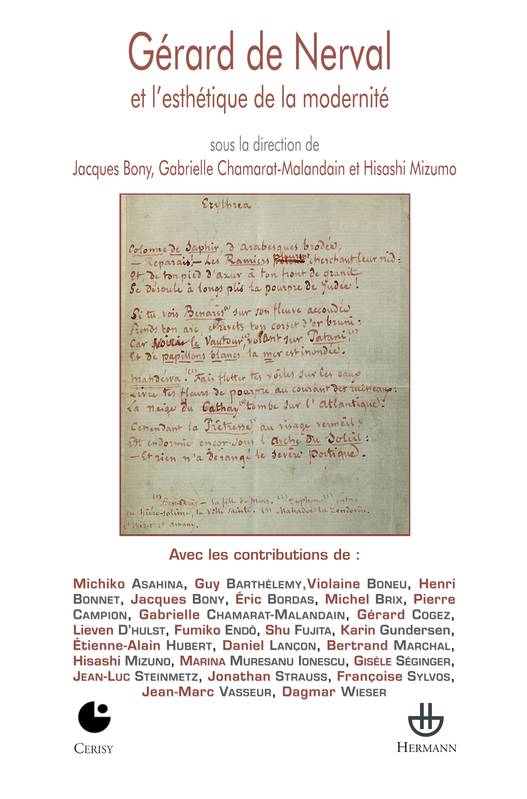 Gérard de Nerval
et l'esthétique de la modernité
sous la direction de
Jacques Bony, Gabrielle Chamarat-Malandain et Hisashi Mizumo
Erythrea
Colonne de Saphir, d'arabesques brodée,
— Reparais! — Les Ramiers cherchant leur nid:
Et, de ton pied d'azur à ton front de granit
Se déroule à longs plis la pourpre de Judée!
Si tu vois Benarès sur son fleuve accoudée
Prends ton arc, et revêts ton corset d'or bruni:
Car le Vautour, volant sur Patani,
Et de papillons blancs la mer est inondée.
Mahdewa! Fais flotter tes voiles sur les eaux
Livre tes fleurs de pourpre au courant des ruisseaux:
La neige du Cathay tombe sur l'Atlantique:
Cependant la Prêtresse au visage vermeil
Est endormie encor sous l'Arche du Soleil:
— Et rien n'a dérangé le sévère portique.
Avec les contributions de :
Michiko Asahina, Guy Barthèlemy,Violaine Boneu, Henri
Bonnet, Jacques Bony, Éric Bordas, Michel Brix, Pierre
Campion, Gabrielle Chamarat-Malandain, Gérard Cogez,
Lieven D'hulst, Fumiko Endô, Shu Fujita, Karin Gundersen,
Étienne-Alain Hubert, Daniel Lançon, Bertrand Marchal,
Hisashi Mizuno, Marina Muresanu Ionescu, Gisèle Séginger,
Jean-Luc Steinmetz, Jonathan Strauss, Françoise Sylvos,
Jean-Marc Vasseur, Dagmar Wieser
Cerisy
Hermann